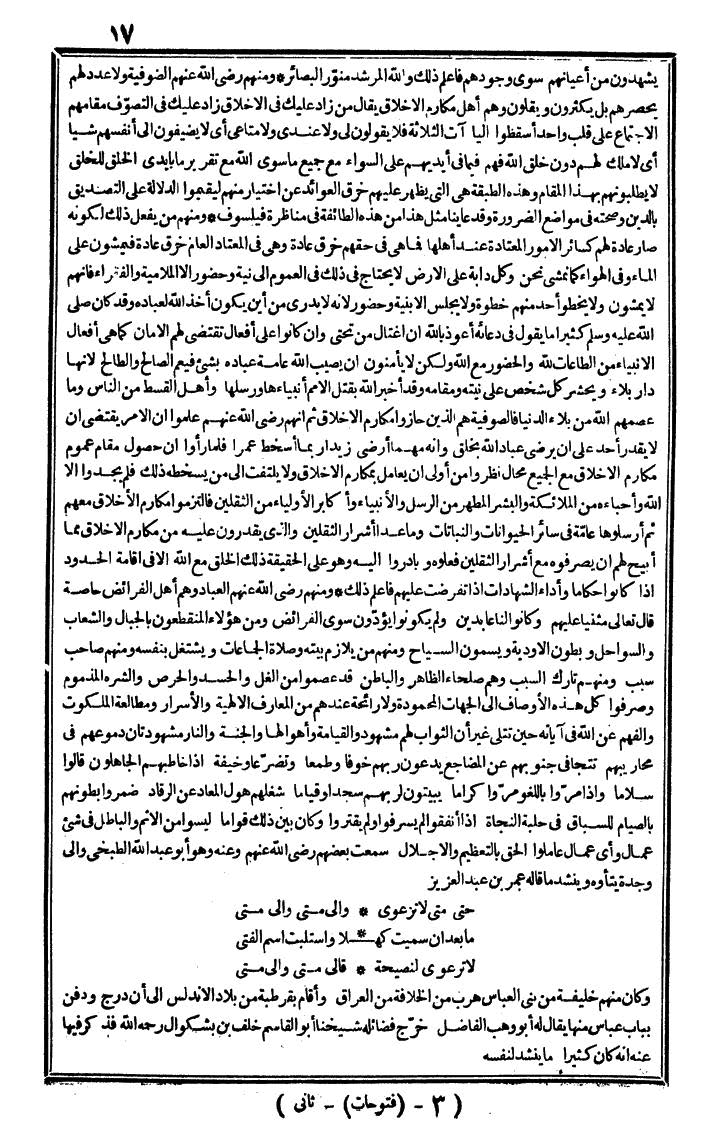 ١٧
يشهدون من أعيانهم سوى وجودهم فاعلم ذلك والله المرشد منور البصائر * ومنهم رضى الله عنهم الصوفية ولا عدد لهم
يحصرهم بل يكثرون ويقلون وهم أهل مكارم الاخلاق يقال من زاد عليك فى الاخلاق زاد عليك فى التصوف مقامهم
الاجتماع على قلب واحد أسقطوا اليا آت الثلاثة فلا يقولون لى ولا عندى ولا متاعى أى لا يضيفون الى أنفسهم شيأ
أى لا ملك لهم دون خلق الله فهم فيما فى أيديهم على السواء مع جميع ما سوى الله مع تقرير ما بايدى الخلق للخلق
لا يطلبونهم بهذا المقام وهذه الطبقة هى التى يظهر عليهم خرق العوائد عن اختيار منهم ليقيموا الدلالة على التصديق
بالدين وصحته فى مواضع الضرورة وقد عاينا مثل هذا من هذه الطائفة فى مناظرة فيلسوف * ومنهم من يفعل ذلك لكونه
صار عادة لهم كسائر الامور المعتادة عند أهلها فما هى فى حقهم خرق عادة وهى فى المعتاد العام خرق عادة فيمشون على
الماء وفى الهواء كما نمشى نحن وكل دابة على الارض لا يحتاج فى ذلك فى العموم الى نية وحضور الا الملامية والفقراء فانهم
لا يمشون ولا يخطو أحد منهم خطوة ولا يجلس الا بنية وحضور لانه لا يدرى من أين يكون أخذ الله لعباده وقد كان صلى
الله عليه وسلم كثيرا ما يقول فى دعائه أعوذ بالله ان اغتال من تحتى وان كانوا على أفعال تقتضى لهم الامان كما هى أفعال
الانبياء من الطاعات لله والحضور مع الله ولكن لا يأمنون ان يصيب الله عامة عباده بشئ فيعم الصالح والطالح لانها
دار بلاء ويحشر كل شخص على نيته ومقامه وقد أخبر الله بقتل الامم أنبياءها ورسلها وأهل القسط من الناس وما
عصمهم الله من بلاء الدنيا فالصوفية هم الذين حازوا مكارم الاخلاق ثم انهم رضى الله عنهم علموا ان الامر يقتضى ان
لا يقدر أحد على ان يرضى عباد الله بخلق وانه مهما أرضى زيدا ربما أسخط عمرا فلما رأوا ان حصول مقام عموم
مكارم الاخلاق مع الجميع محال نظروا من أولى ان يعامل بمكارم الاخلاق ولا يلتفت الى من يسخطه ذلك فلم يجدوا الا
الله وأحباءه من الملائكة والبشر المطهر من الرسل والأنبياء وأكابر الأولياء من الثقلين فالتزموا مكارم الأخلاق معهم
ثم أرسلوها عامّة فى سائر الحيوانات والنباتات وما عدا أشرار الثقلين والذى يقدرون عليه من مكارم الاخلاق مما
أبيح لهم ان يصرفوه مع أشرار الثقلين فعلوه وبادروا اليه وهو على الحقيقة ذلك الخلق مع الله الا فى اقامة الحدود
اذا كانوا حكاما وأداء الشهادات اذا تفرضت عليهم فاعلم ذلك * ومنهم رضى الله عنهم العباد وهم أهل الفرائض خاصة
قال تعالى مثنيا عليهم وكانوا لنا عابدين ولم يكونوا يؤدّون سوى الفرائض ومن هؤلاء المنقطعون بالجبال والشعاب
والسواحل وبطون الاودية ويسمون السياح ومنهم من يلازم بيته وصلاة الجاعات ويشتغل بنفسه ومنهم صاحب
سبب ومنهم تارك السبب وهم صلحاء الظاهر والباطن قد عصموا من الغل والحسد والحرص والشره المذموم
وصرفوا كل هذه الأوصاف الى الجهات المحمودة ولا رائحة عندهم من المعارف الالهية والأسرار ومطالعة الملكوت
والفهم عن الله فى آياته حين تتلى غير أن الثواب لهم مشهود والقيامة وأهوالها والجنة والنار مشهودتان دموعهم فى
محاريبهم تتجافى جنوبهم عن المضاجع يدعون ربهم خوفا وطمعا وتضرّعا وخيفة اذا خاطبهم الجاهلون قالوا
سلاما واذا مرّوا باللغو مرّوا كراما يبيتون لربهم سجدا وقياما شغلهم هول المعاد عن الرقاد ضمروا بطونهم
بالصيام للسباق فى حلبة النجاة اذا أنفقوا لم يسرفوا ولم يقتروا وكان بين ذلك قواما ليسوا من الاثم والباطل فى شئ
عمال وأى عمال عاملوا الحق بالتعظيم والاجلال سمعت بعضهم رضى الله عنهم وعنه وهو أبو عبد الله الطبخى والى
وجدة يتأوه وينشد ما قاله عمر بن عبد العزيز
حتى متى لا ترعوى * والى متى والى متى
ما بعد ان سميت كهـلا * واستلبت اسم الفتى
لا ترعوى لنصيحة * فالى متى والى متى
وكان منهم خليفة من بنى العباس هرب من الخلافة من العراق وأقام بقرطبة من بلاد الاندلس الى أن درج ودفن
بباب عباس منها يقال له أبو وهب الفاضل خرّج فضائله شيخنا أبو القاسم خلف بن بشكوال رحمه الله فذكر فيها
عنه انه كان كثيرا ما ينشد لنفسه
( ٣ - (فتوحات) - ثانى )